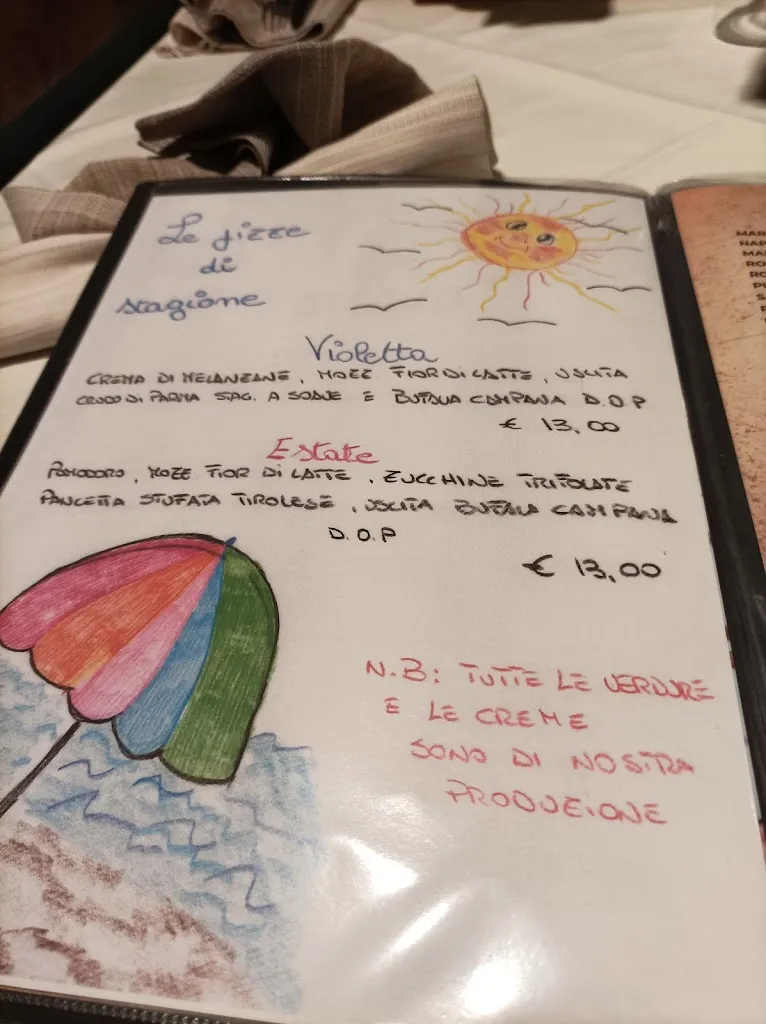 Le pizze
di
stagione
Violetta
CREMA DI MELANZANE, MOZZ FIOR DI LATTE, USCITA
CRUDO DI PARMA STAG. A SAUZE E BUFALA CAMPANA D.O.P
€ 13,00
Estate
POMODORO, MOZZ FIOR DI LATTE, ZUCCHINE TRIFOLATE
PANCETTA STUFATA TIROLESE, USCITA BUFALA CAMPANA
D.O.P
€ 13,00
N.B: TUTTE LE VERDURE
E LE CREME
SONO DI NOSTRA
PRODUZIONE